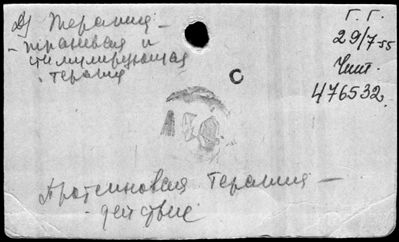 Д) Терапия –
– тканевая и
стимулирующая
терапия
Г. Г.
29/7-55
Чит.
476532
С
Протеиновая терапия –
– действие